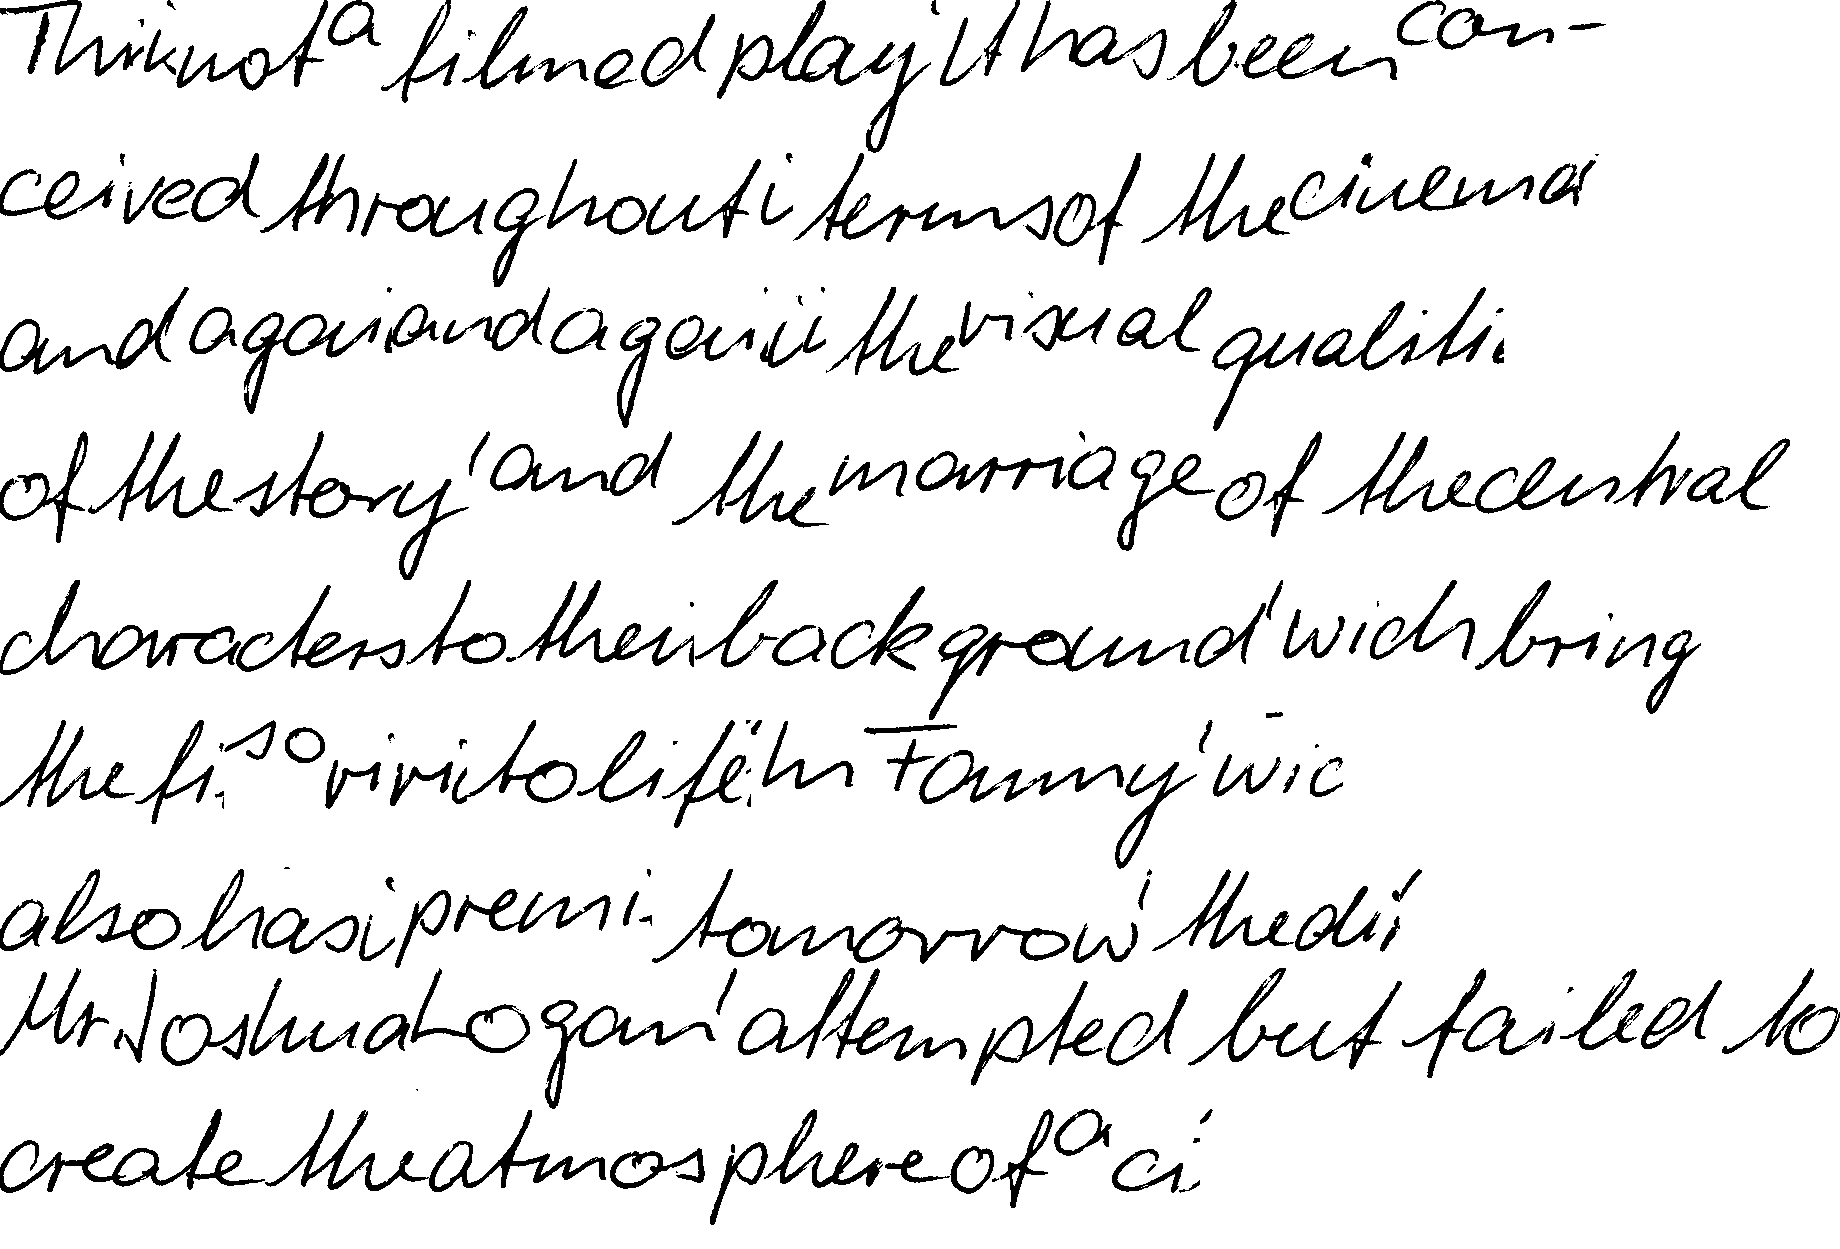 This is not a filmed play. It has been con-
ceived throughout in terms of the cinema
and again and again the visual
of the story and the marriage of the central
characters to their background wich bring
the so to life. In Fanny wic
also has tomorrow the
Mr. Joshua Logan attempted but failed to
create the atmosphere of a